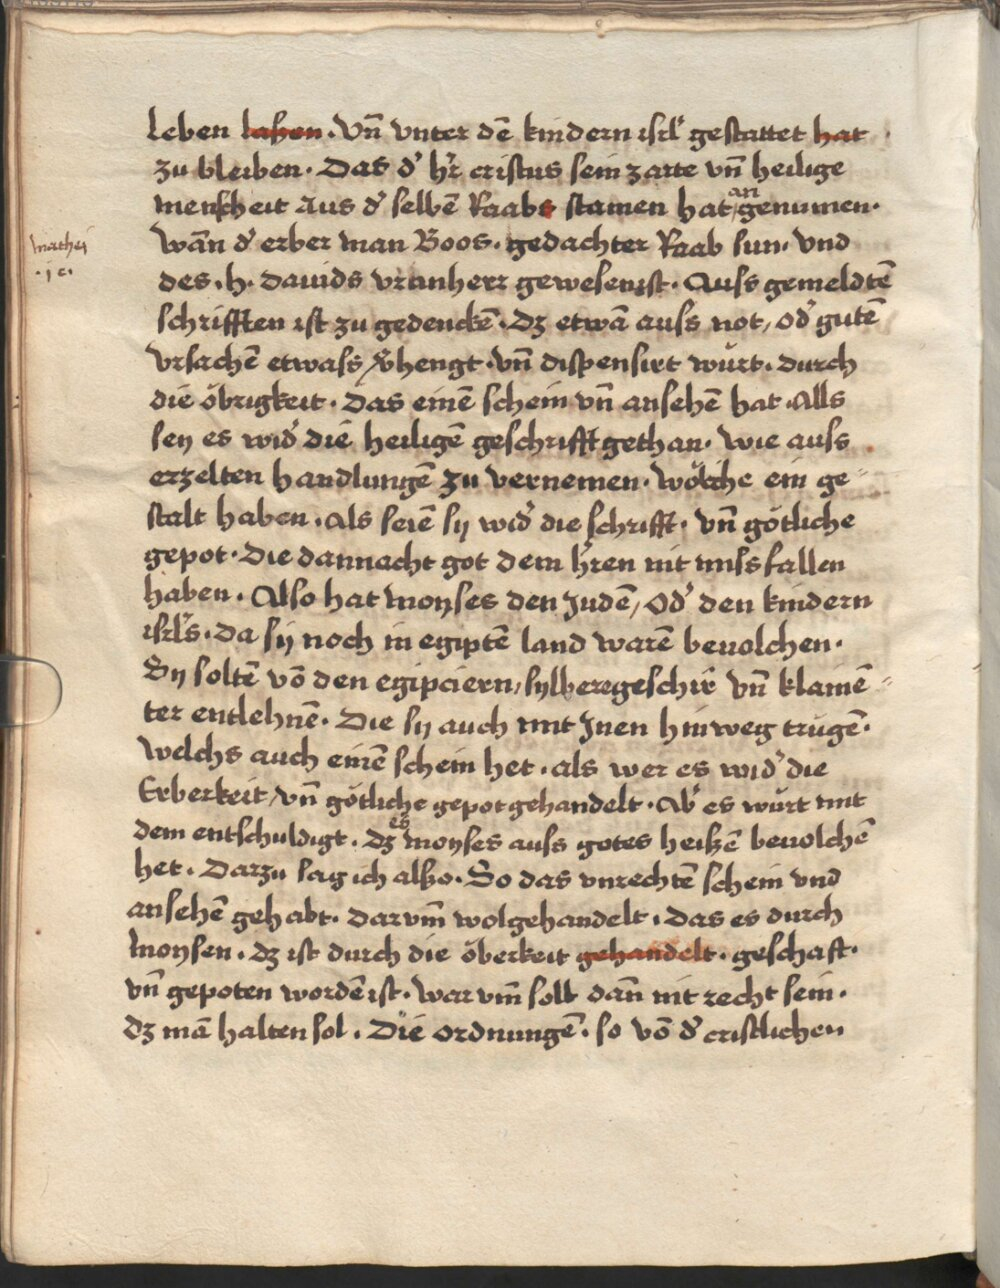 leben lassen. Vn̄ vnter dē kindern isrl' gestattet hat
zu bleiben. Das d' hr̄ cristus sein zarte vn̄ heilige
menscheit aus d' selbē Raabs stamen hat an genumen.
Wān d' erber man Boos. gedachter Raab sun. vnd
mathei
.i c.
des. h. dauids vranherr gewesen ist. Auss gemeldtē
schrifften ist zu gedenckē. dz etwā auss not, od' gutē
vrsachē etwass v'hengt. vn̄ dispensirt würt. durch
die öbrigkeit. das einē schein vn̄ ansehē hat. Alls
sey es wid' die heiligē geschrifft gethan. wie auss
erzelten handlungē zu vernemen. wölche ein ge-
stalt haben. als seiē sy wid' die schrifft. vn̄ götliche
gepot. Die dannacht got dem h'ren nit missfallen
haben. Also hat moyses den Judē, od' den kindern
isrl's. da sy noch in egiptē land warē beuolchen.
Sy soltē vō den egipciern, sylberegeschir vn̄ klainē-
ter entlehnē. Die sy auch mit Jnen hinweg trugē.
welchs auch einē schein het. als wer es wid' die
Erberkeit, vn̄ götliche gepot gehandelt. Ab' es würt mit
dem entschuldigt. dz es moyses auss gotes heißē beuolchē
het. Darzu sag ich also. So das vnrechtē schein vnd
ansehē gehabt. darum̄ wolgehandelt. das es durch
moysen. dz ist durch die öberkeit gehandelt. geschaft.
vn̄ gepoten wordē ist. warum̄ sollt dan̄ nit recht sein.
dz mā halten sol. Die ordnungē. so vō d' cristlichen